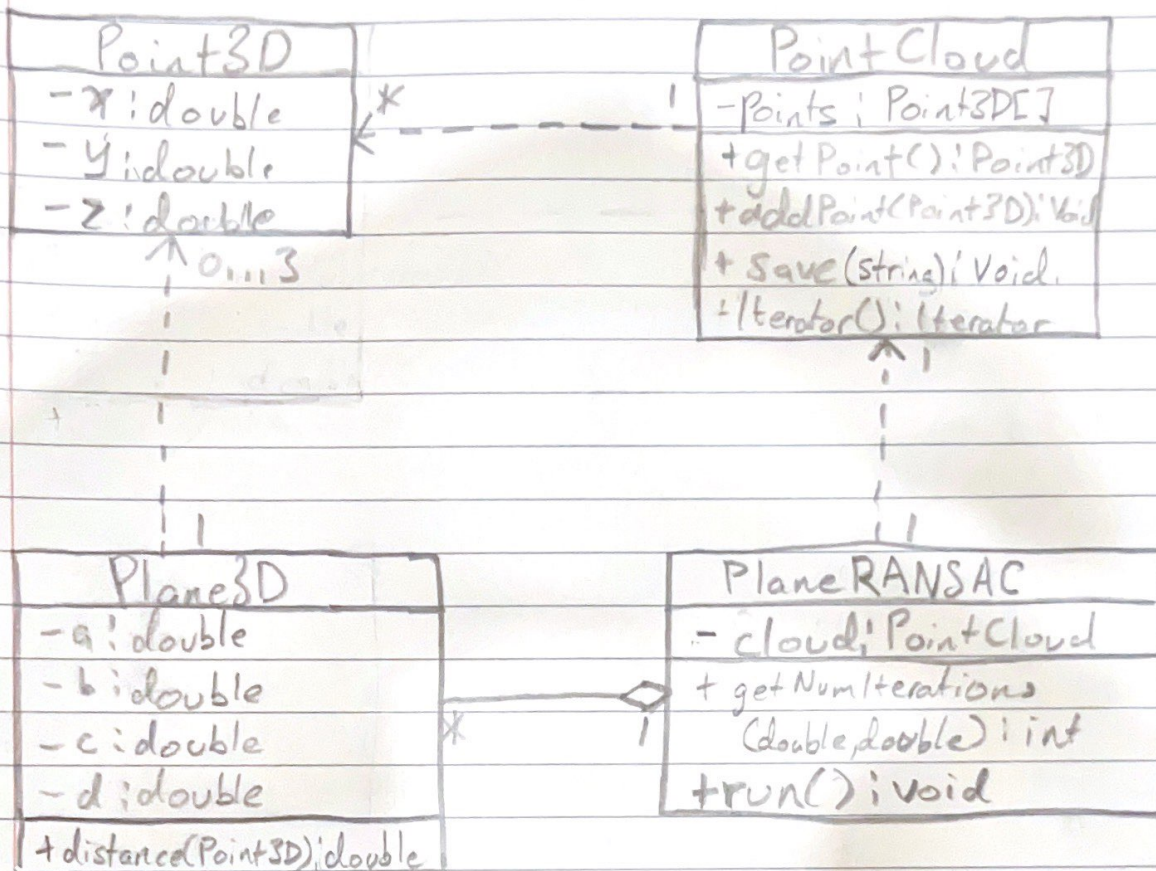 Point3D
- x : double
- y : double
- z : double
*
1
PointCloud
- points : Point3D[]
+ getPoint() : Point3D
+ addPoint(Point3D) : Void
+ save(string) : Void
+ Iterator() : Iterator
0...3
1
1
1
Plane3D
- a : double
- b : double
- c : double
- d : double
+ distance(Point3D) : double
*
1
PlaneRANSAC
- cloud : PointCloud
+ getNumIterations
(double, double) : int
+ run() : void